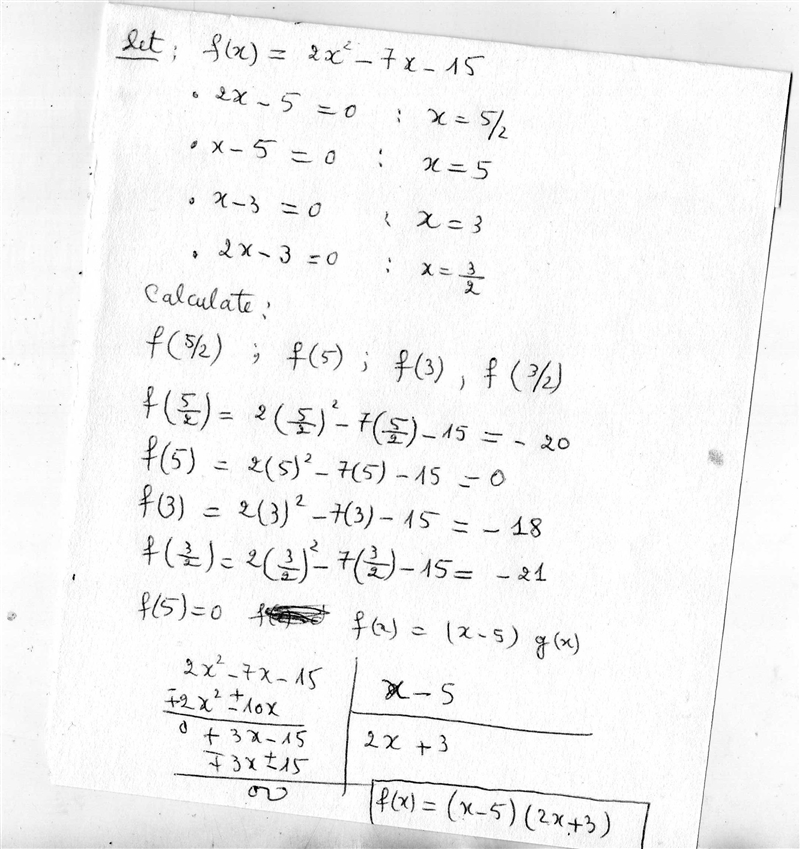 Let; f(x) = 2x² - 7x - 15
• 2x - 5 = 0 : x = 5/2
• x - 5 = 0 : x = 5
• x - 3 = 0 : x = 3
• 2x - 3 = 0 : x = 3/2
Calculate:
f(5/2) ; f(5) ; f(3) , f(3/2)
f(5/2) = 2(5/2)² - 7(5/2) - 15 = - 20
f(5) = 2(5)² - 7(5) - 15 = 0
f(3) = 2(3)² - 7(3) - 15 = - 18
f(3/2) = 2(3/2)² - 7(3/2) - 15 = - 21
f(5) = 0 f(x) = (x - 5) g(x)
2x² - 7x - 15 | x - 5
∓2x² ± 10x
0 + 3x - 15 | 2x + 3
∓3x ± 15
00
f(x) = (x - 5) (2x + 3)